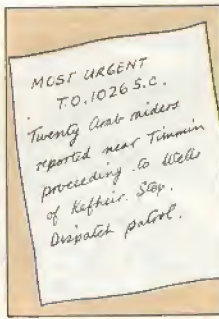 MOST URGENT
T.O. 1026 S.C.
Twenty Arab raiders
reported near Timmin
proceeding to Wells
of Kefheir. Stop.
Dispatch patrol.